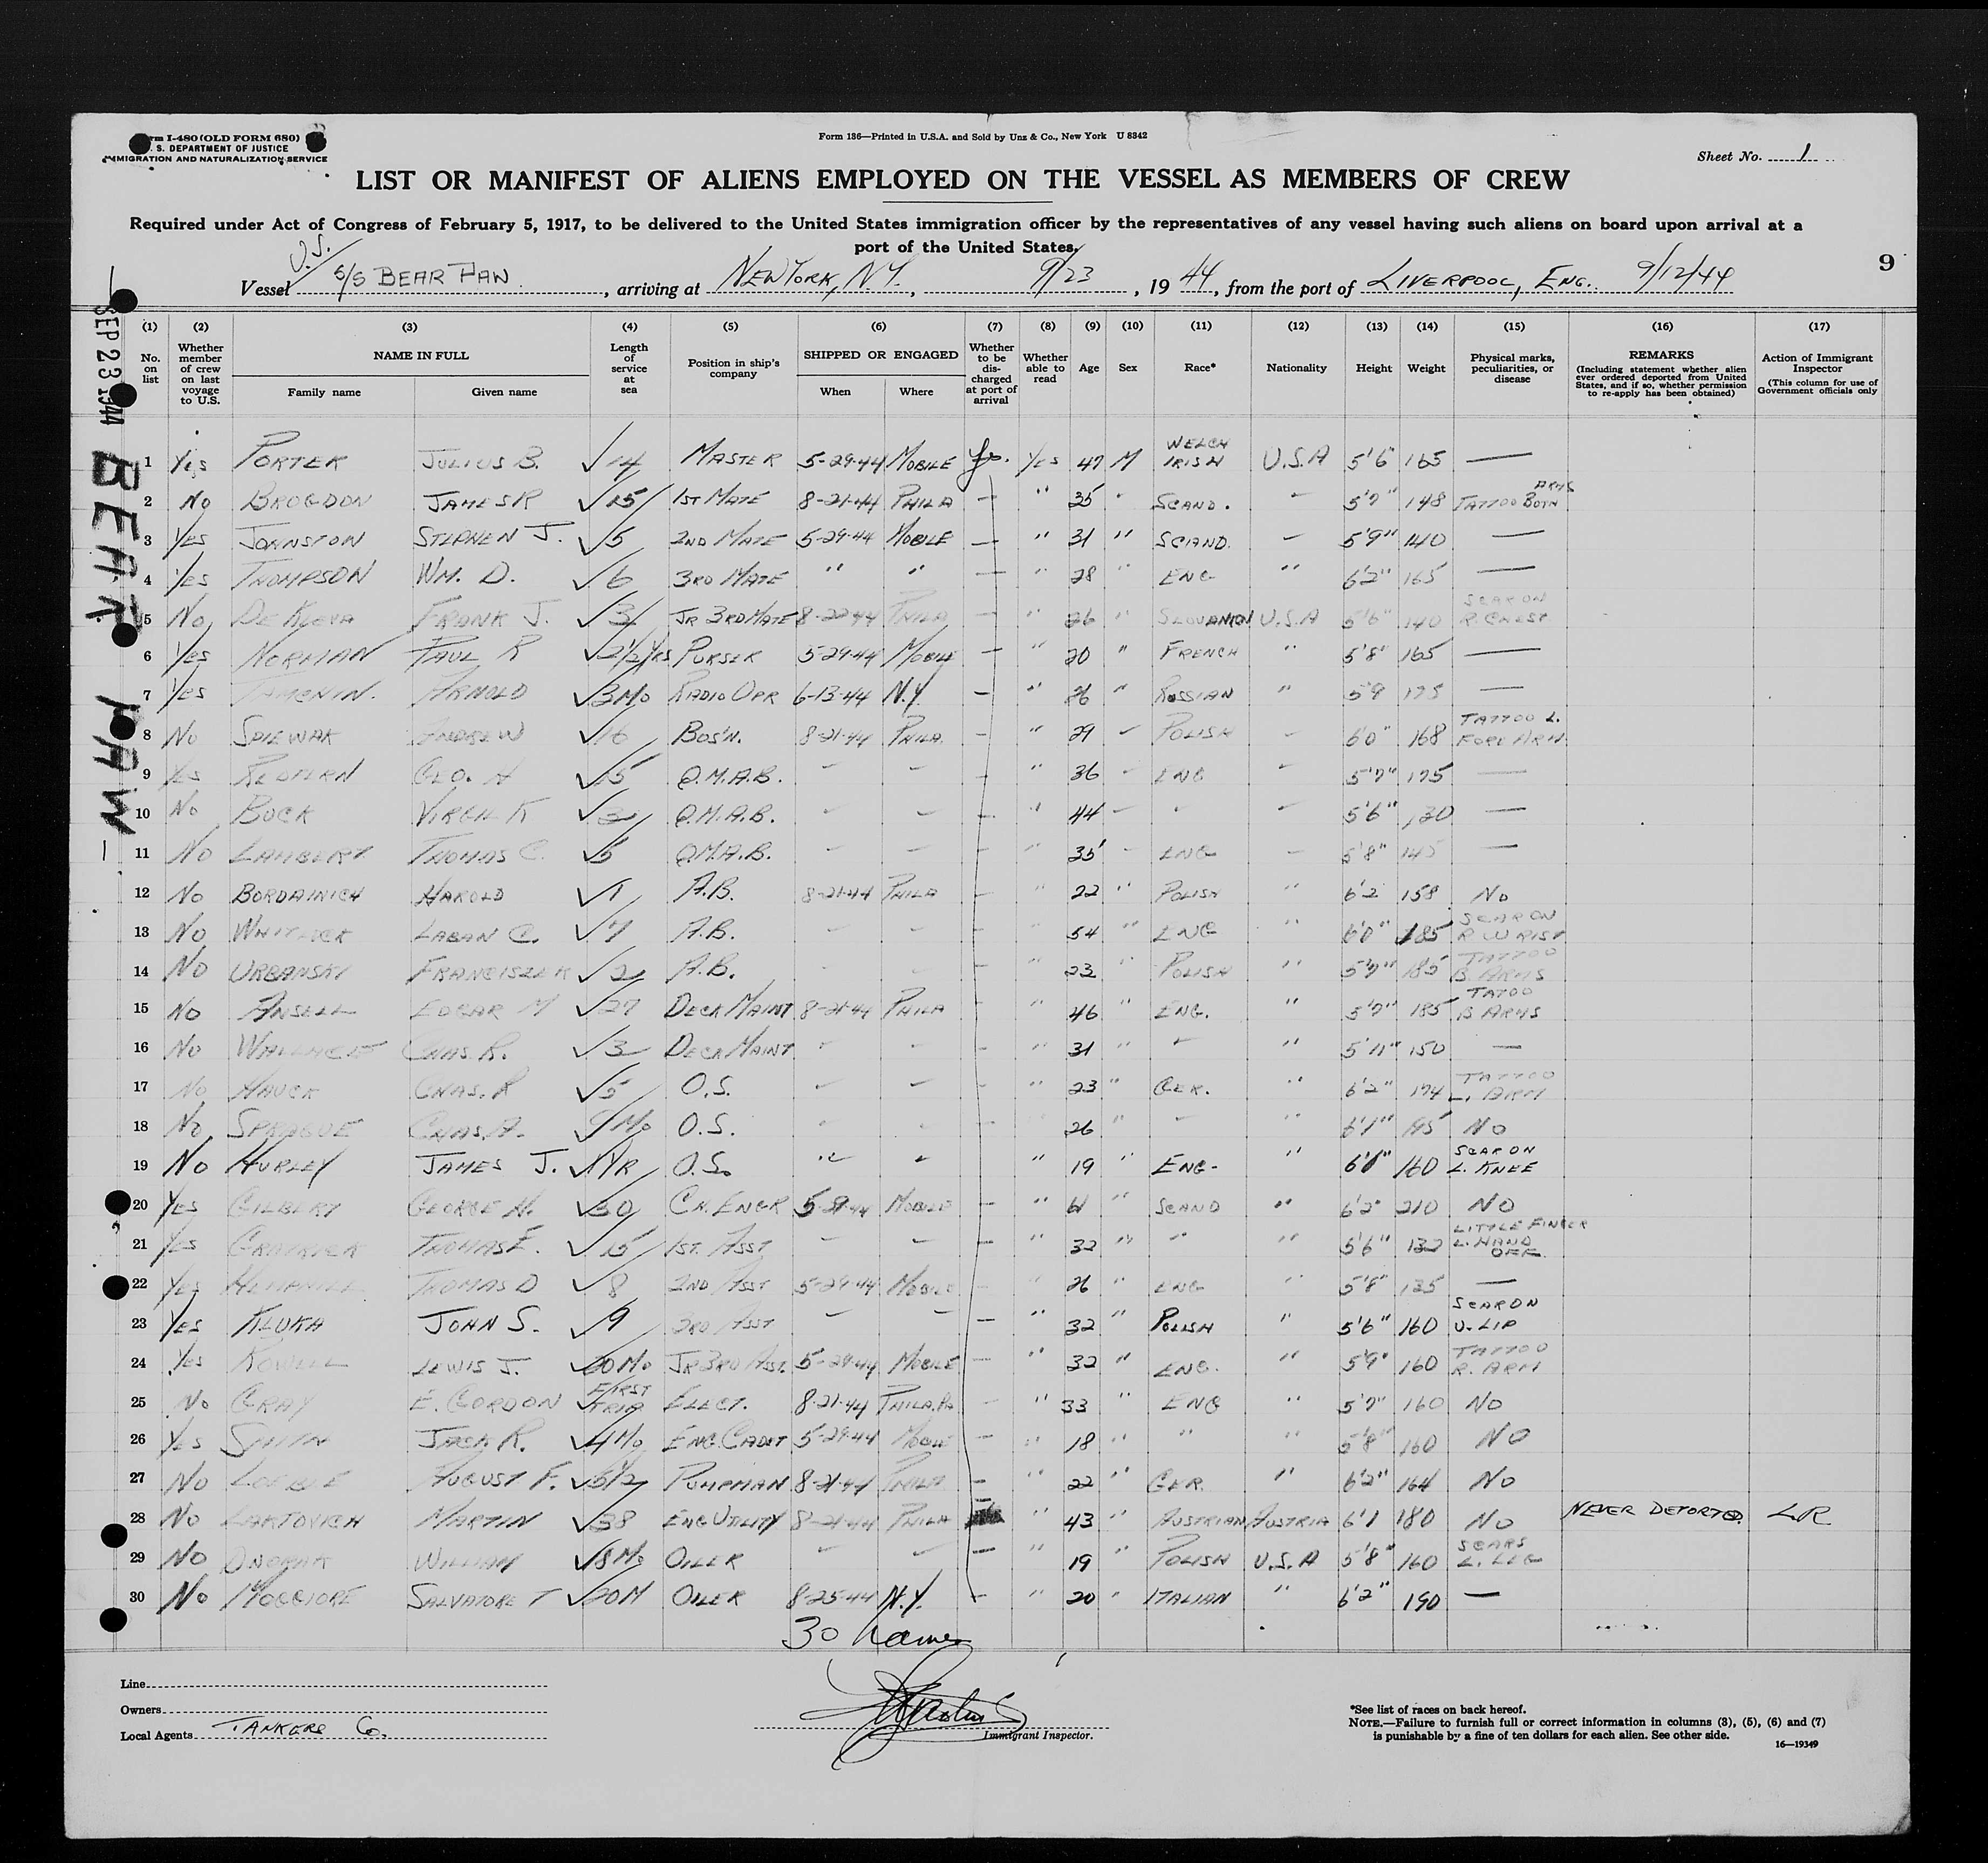 rm I-480 (OLD FORM 680)
S. DEPARTMENT OF JUSTICE
MMIGRATION AND NATURALIZATION SERVICE
Form 136—Printed in U.S.A. and Sold by Unz & Co., New York U 8342
Sheet No. 1
LIST OR MANIFEST OF ALIENS EMPLOYED ON THE VESSEL AS MEMBERS OF CREW
Required under Act of Congress of February 5, 1917, to be delivered to the United States immigration officer by the representatives of any vessel having such aliens on board upon arrival at a
port of the United States.
9
U.S.
Vessel S/S BEAR PAW, arriving at NEW YORK, N.Y., 9/23, 1944, from the port of LIVERPOOL, ENG. 9/12/44
SEP 23 1944
BEAR PAW
(1) (2) (3) (4) (5) (6) (7) (8) (9) (10) (11) (12) (13) (14) (15) (16) (17)
No. on list
Whether member of crew on last voyage to U.S.
NAME IN FULL
Family name Given name
Length of service at sea
Position in ship's company
SHIPPED OR ENGAGED
When Where
Whether to be discharged at port of arrival
Whether able to read
Age
Sex
Race*
Nationality
Height
Weight
Physical marks, peculiarities, or disease
REMARKS
(Including statement whether alien ever ordered deported from United States, and if so, whether permission to re-apply has been obtained)
Action of Immigrant Inspector
(This column for use of Government officials only
1 Yes PORTER JULIUS B. √14 MASTER 5-29-44 MOBILE Yes 47 M WELCH IRISH U.S.A 5'6 165 —
2 No BROGDON JAMES R √15 1ST MATE 8-21-44 PHILA — " 35 " SCAND. — 5'7" 148 TATTOO BOTH ARMS
3 Yes JOHNSTON STEPHEN J. √5 2ND MATE 5-29-44 MOBILE — " 31 " SCAND. — 5'9" 140 —
4 Yes THOMPSON WM. D. √6 3RD MATE " " — " 28 " ENG " 6'2" 165 —
5 No FRANK J. √3 JR 3RD MATE 8-22-44 PHILA — " 26 " U.S.A 5'6" 140 SCAR ON R. CHEST
6 Yes NORMAN PAUL R √2½ YRS PURSER 5-29-44 MOBILE — " 20 " FRENCH " 5'8" 165 —
7 Yes ARNOLD √3 MO RADIO OPR 6-13-44 N.Y. — " 26 " RUSSIAN " 5'9 175 —
8 No SPIEWAK ANDREW √16 BOS'N. 8-21-44 PHILA. — " 29 — POLISH — 6'0" 168 TATTOO L. FORE ARM
9 Yes REDFERN GEO. H √15 Q.M.A.B. — — — " 36 — ENG — 5'7" 175 —
10 No BUCK VIRGIL K √ Q.M.A.B. — — — " 44 — " — 5'6" 130 —
11 No LAMBERT THOMAS C. √5 Q.M.A.B. — — — " 35 — ENG — 5'8" 145 —
12 No HAROLD √1 A.B. 8-21-44 PHILA — " 22 " POLISH " 6'2 158 No
13 No WHITLOCK LABAN C. √7 A.B. — — — " 54 " ENG " 6'0" 185 SCAR ON R WRIST
14 No URBANSKI FRANCISZEK √2 A.B. — — — " 23 " POLISH " 5'7" 185 TATTOO B ARMS
15 No ANSELL EDGAR M √27 DECK MAINT 8-21-44 PHILA — " 46 " ENG. " 5'7" 185 TATOO B ARMS
16 No WALLACE CHAS. R. √3 DECK MAINT — — — " 31 " " " 5'11" 150 —
17 No HAUCK CHAS. R √5 O.S. — — — " 23 " GER. " 6'2" 174 TATTOO L. ARM
18 No SPRAGUE CHAS. A. 9 MO O.S. — — — 26 " — " 6'1" 195 No
19 No HURLEY JAMES J. √1 YR O.S. " " " 19 " ENG- " 160 SCAR ON L. KNEE
20 Yes GILBERT GEORGE H. √30 CH. ENGR MOBILE — " 61 " SCAND " 6'2" 210 NO
21 Yes THOMAS E. √15 1ST. ASST — — — " 32 " " " 5'6" 132 LITTLE FINGER L. HAND OFF
22 Yes THOMAS D √8 2ND ASST 5-29-44 MOBILE — " 26 " ENG " 5'8" 135 —
23 Yes KLUKA JOHN S. √9 3RD ASST — — — " 32 " POLISH " 5'6" 160 SCAR ON U. LIP
24 Yes ROWELL LEWIS J. √20 MO JR 3RD ASST. 5-29-44 MOBILE — " 32 " ENG. " 5'9" 160 TATTOO R. ARM
25 No GRAY E. GORDON FIRST TRIP ELECT. 8-21-44 PHILA, PA — " 33 " ENG " 5'7" 160 NO
26 Yes SMITH JACK R. √4 MO ENG. CADET 5-29-44 MOBILE — " 18 " " " 5'8" 160 NO
27 No AUGUST F. √5½ PUMPMAN 8-21-44 PHILA — " 22 " GER. " 6'2" 164 NO
28 No MARTIN √38 ENG UTILITY 8-21-44 PHILA " 43 " AUSTRIAN AUSTRIA 6'1 180 NO NEVER DETORTED. LR
29 No WILLIAM √8 MO OILER — — — " 19 " POLISH U.S.A 5'8" 160 SCARS L. LEG
30 No SALVATORE T √20M OILER 8-25-44 N.Y. — " 20 " ITALIAN " 6'2" 190 —
30 names
Line
Owners
Local Agents TANKERS CO.
Immigrant Inspector.
*See list of races on back hereof.
NOTE.—Failure to furnish full or correct information in columns (3), (5), (6) and (7)
is punishable by a fine of ten dollars for each alien. See other side.
16—19349